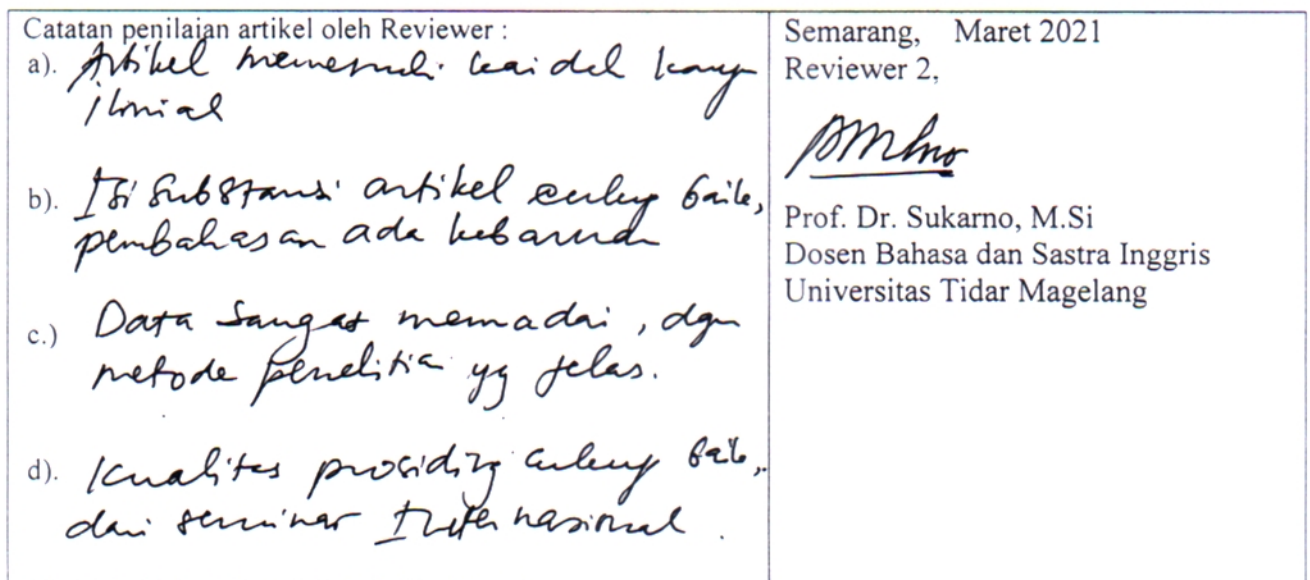 Catatan penilaian artikel oleh Reviewer :
a). Artikel memenuhi kaidah karya
ilmiah
b). Isi substansi artikel cukup baik,
pembahasan ada kebaruan
c.) Data sangat memadai, dgn
metode penelitian yg jelas.
d). Kualitas prosiding cukup baik,
dari seminar Internasional.
Semarang, Maret 2021
Reviewer 2,
Prof. Dr. Sukarno, M.Si
Dosen Bahasa dan Sastra Inggris
Universitas Tidar Magelang